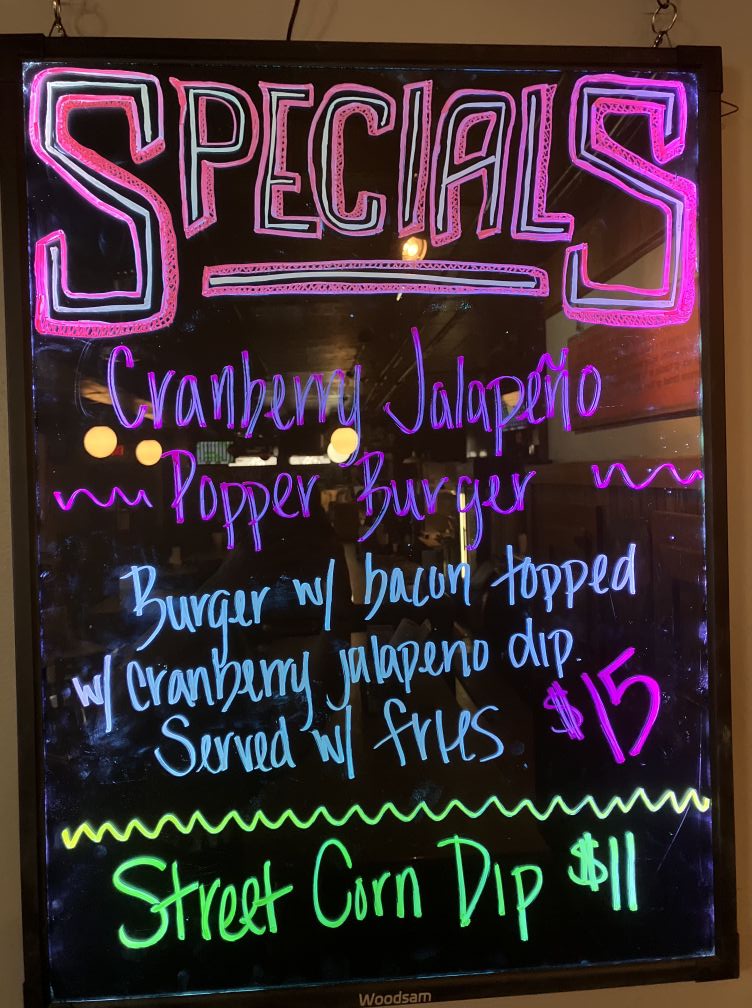 SPECIALS
Cranberry Jalapeño
Popper Burger
Burger w/ bacon topped
w/ cranberry jalapeno dip.
Served w/ fries $15
Street Corn Dip $11
Woodsam